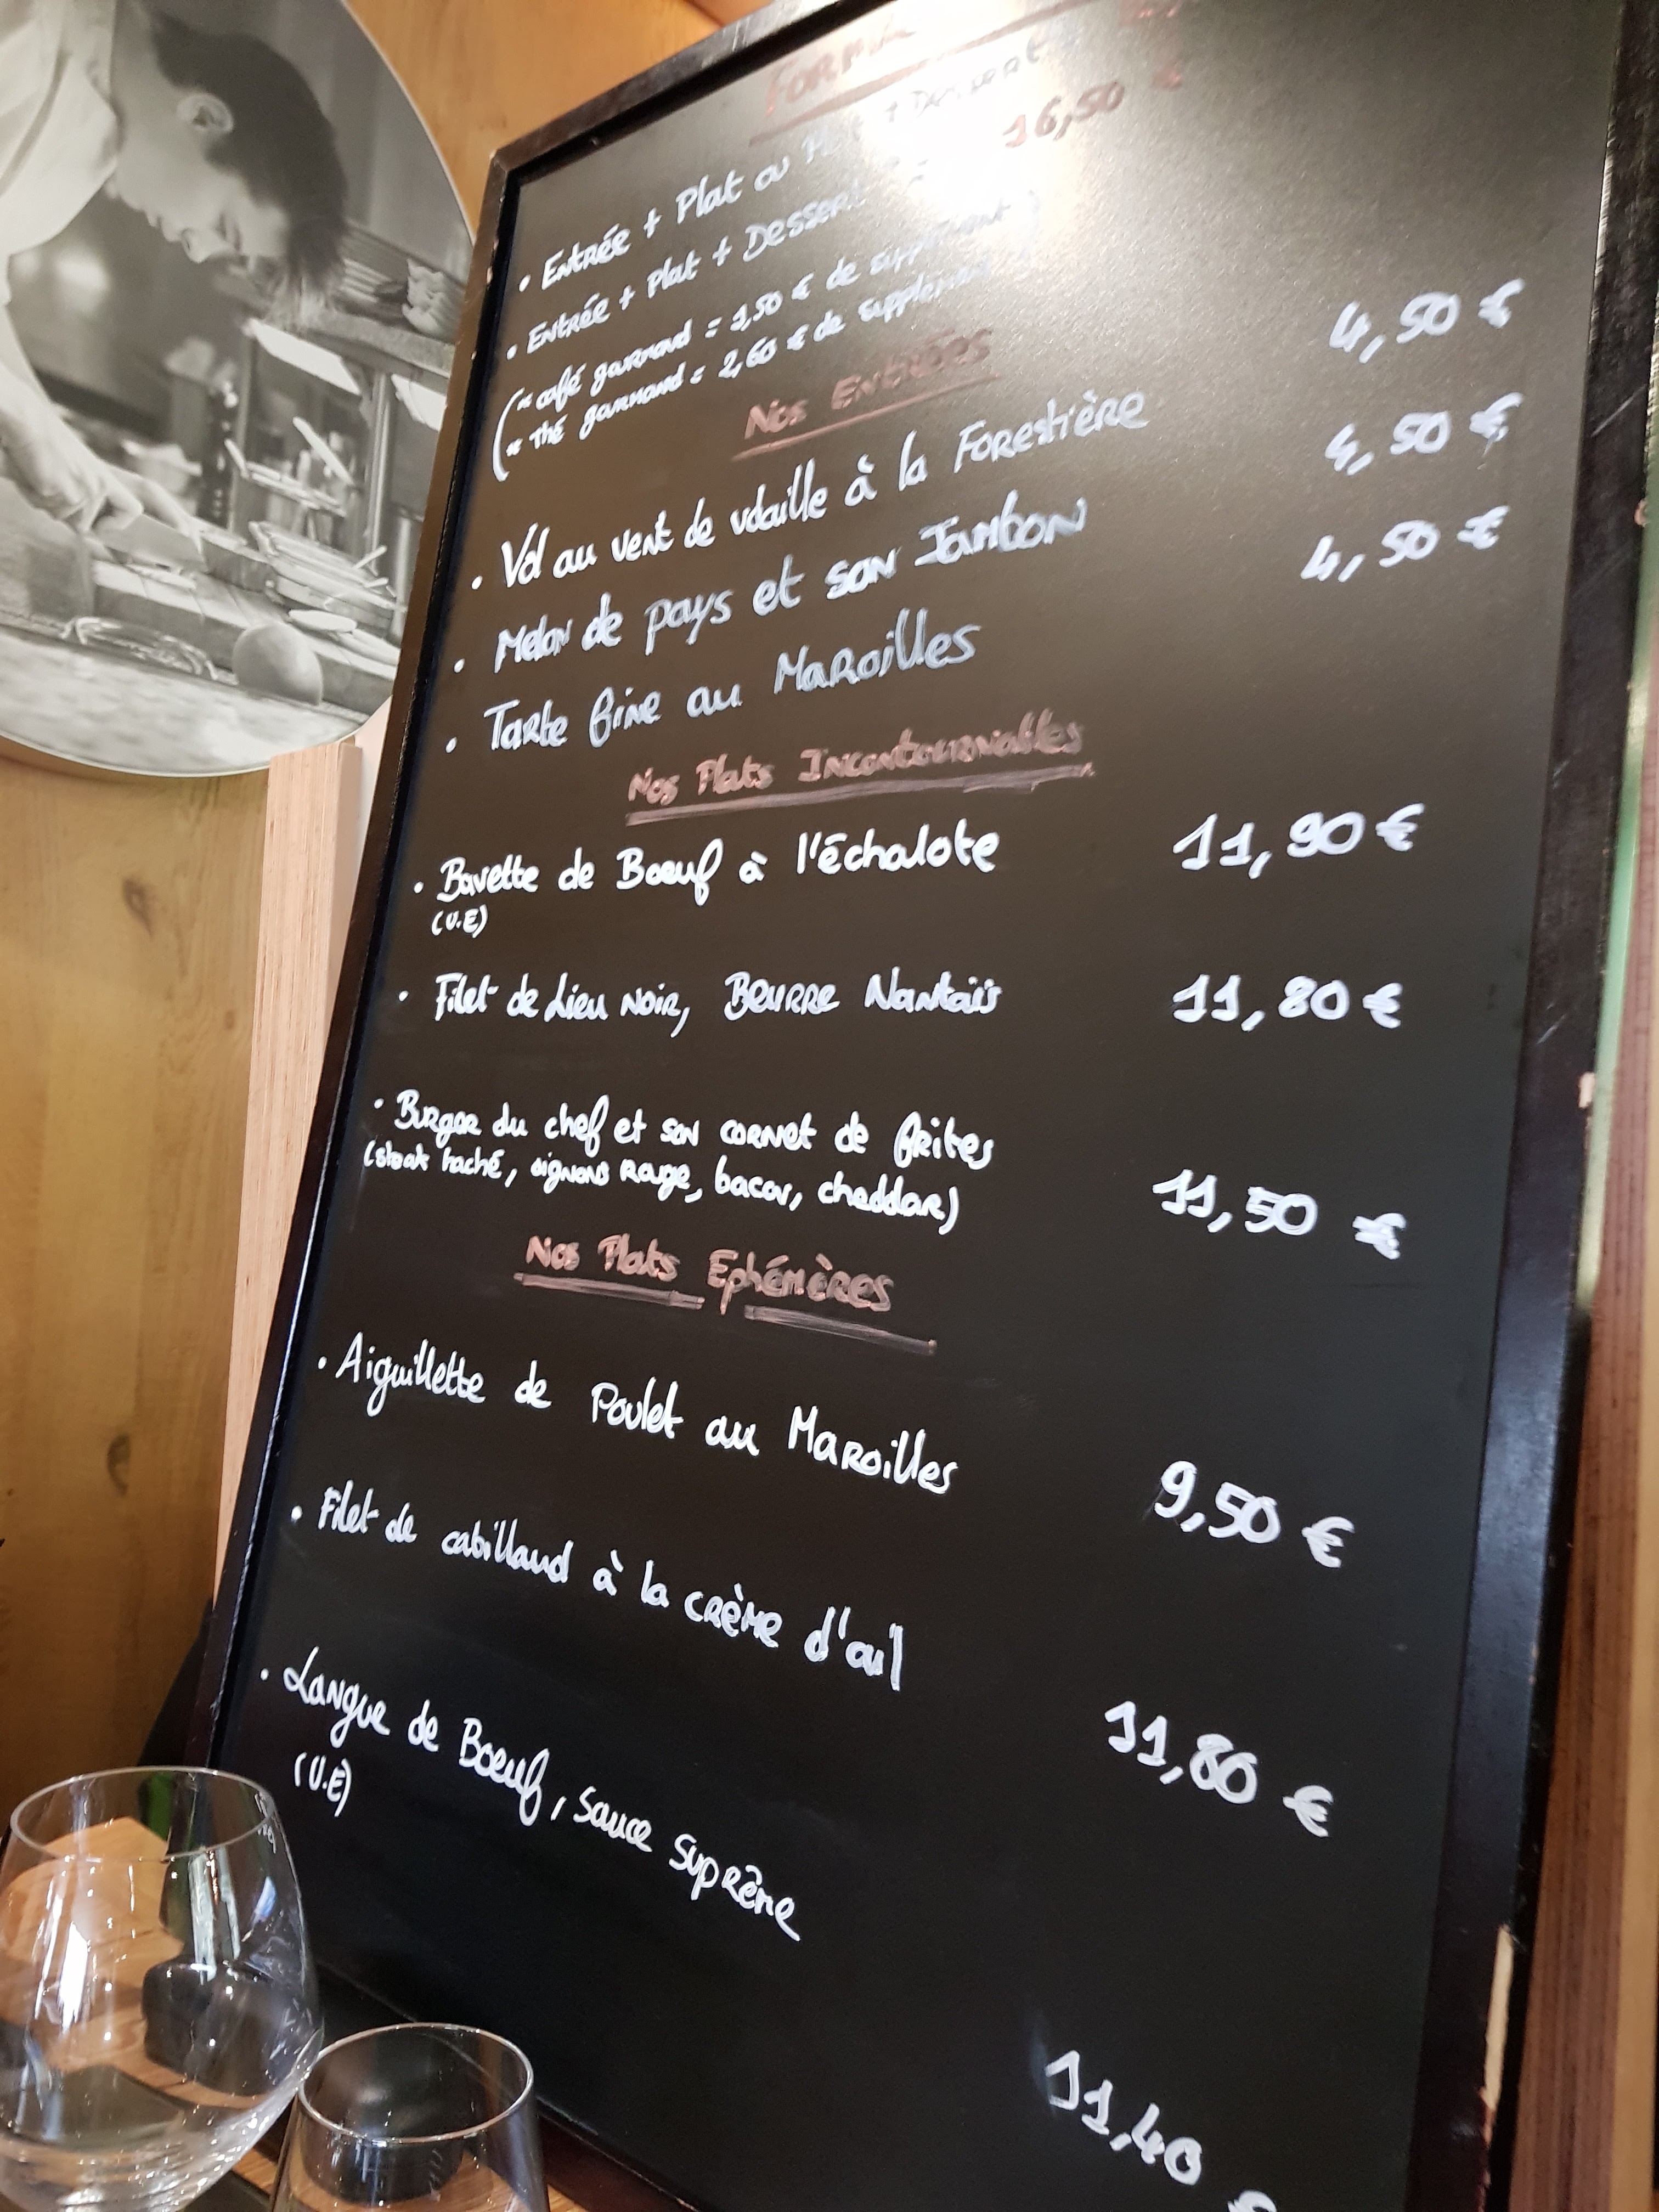 • Entrée + Plat ou Plat + Dessert
16,50 €
• Entrée + Plat + Dessert
(~ café gourmand = 1,50 € de supplément)
~ Thé gourmand = 2,60 € de supplément
Nos Entrées
• Vol au vent de volaille à la Forestière 4,50 €
• Melon de pays et son Jambon 4,50 €
• Tarte fine au Maroilles 4,50 €
Nos Plats Incontournables
• Bavette de Boeuf à l'échalote 11,90 €
(U.E)
• Filet de Lieu Noir, Beurre Nantais 11,80 €
• Burger du chef et son cornet de frites
(steak haché, oignons rouge, bacon, cheddar) 11,50 €
Nos Plats Ephémères
• Aiguillette de Poulet au Maroilles 9,50 €
• Filet de cabillaud à la crème d'ail 11,80 €
• Langue de Boeuf, sauce suprême 11,40 €
(U.E)